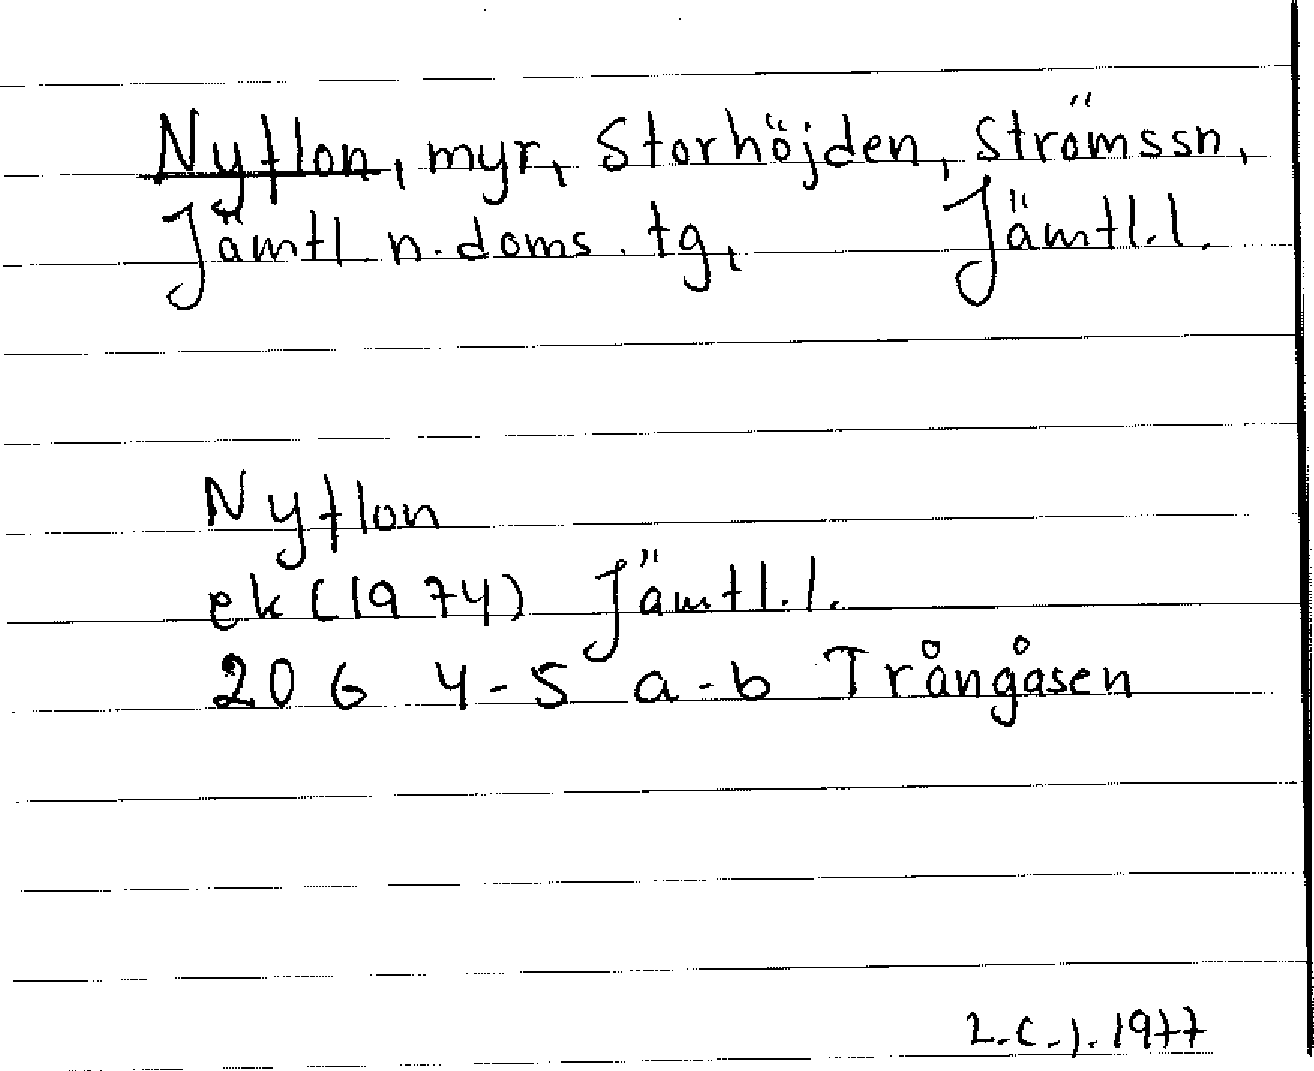 Nyflon, myr, Storhöjden, Strömssn,
Jämtl n. doms. tg, Jämtl.l.
Nyflon
ek (1974) Jämtl.l.
20 G 4-5 a-b Trångåsen
L.C.J. 1977